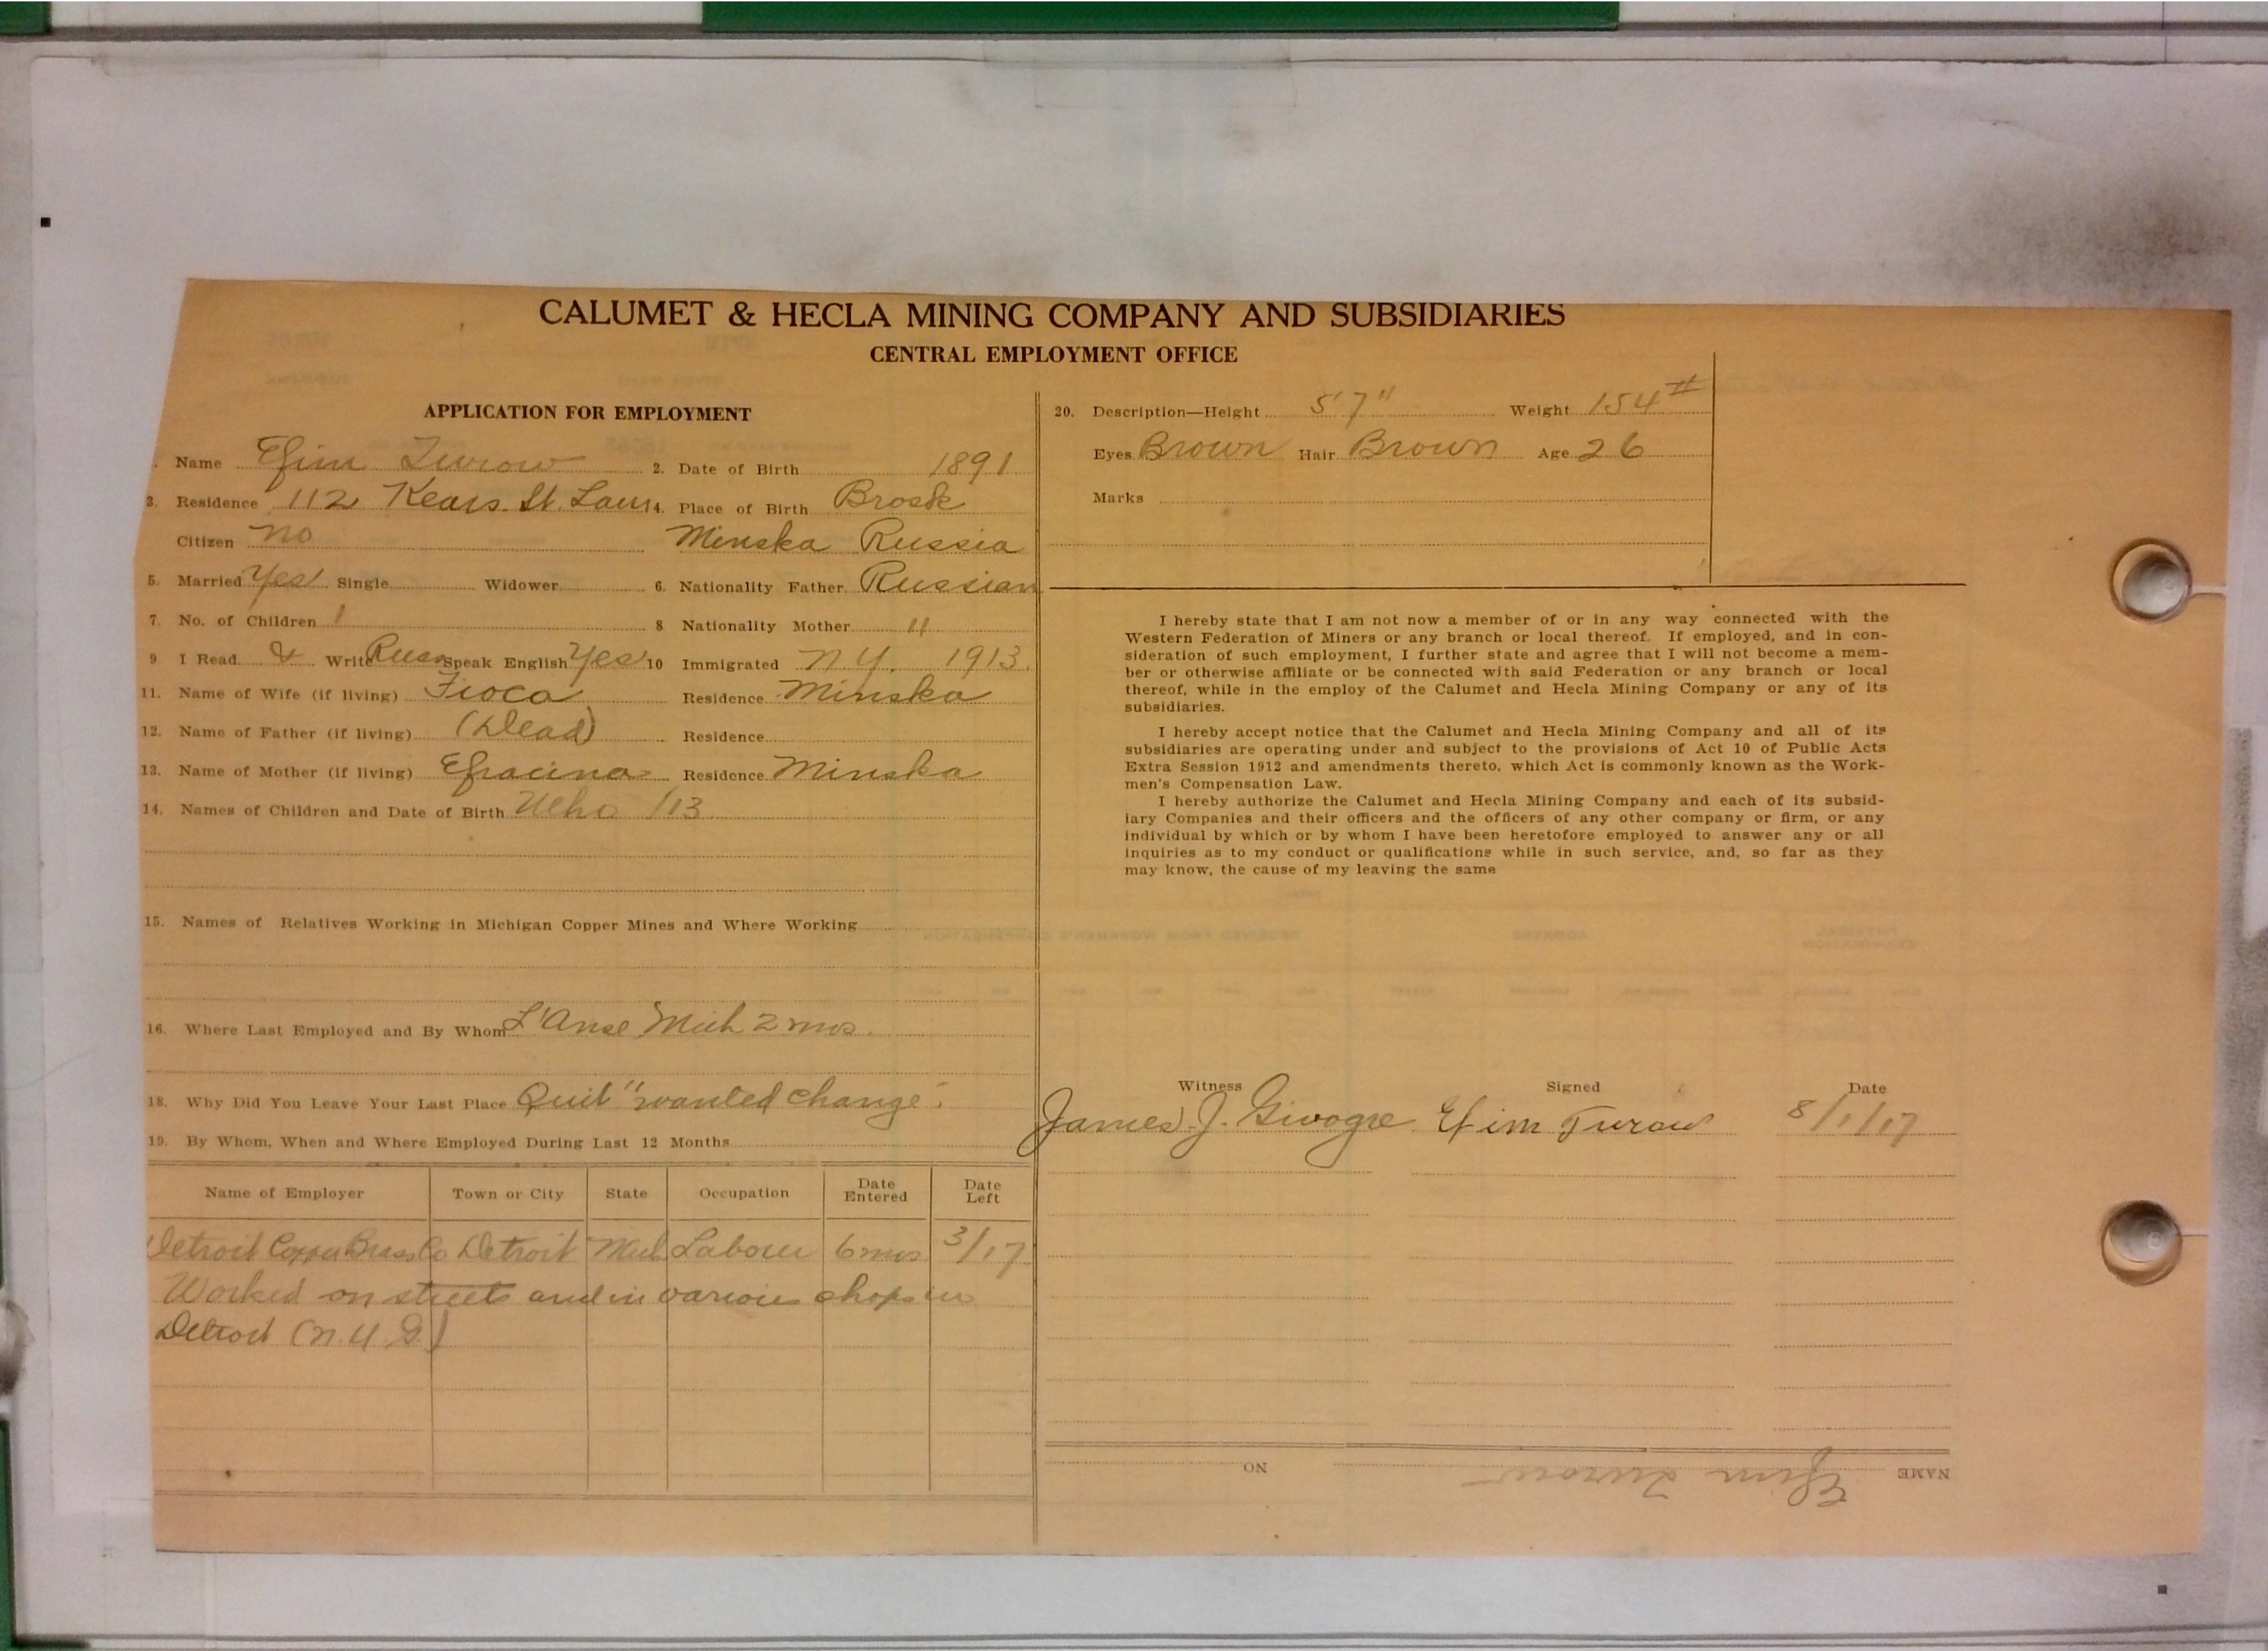 CALUMET & HECLA MINING COMPANY AND SUBSIDIARIES
CENTRAL EMPLOYMENT OFFICE
APPLICATION FOR EMPLOYMENT
Name Efim Turow 2. Date of Birth 1891
3. Residence 112 Kears. St. Laur 4. Place of Birth Brosk
Citizen no Minska Russia
5. Married Yes Single Widower 6. Nationality Father Russian
7. No. of Children 1 8 Nationality Mother "
9 I Read & Write Russ Speak English Yes 10 Immigrated N.Y. 1913.
11. Name of Wife (if living) Fioca Residence Minska
12. Name of Father (if living) (Dead) Residence
13. Name of Mother (if living) Efracina Residence Minska
14. Names of Children and Date of Birth /13
15. Names of Relatives Working in Michigan Copper Mines and Where Working
16. Where Last Employed and By Whom L'Anse Mich 2 mos.
18. Why Did You Leave Your Last Place Quit "wanted change".
19. By Whom, When and Where Employed During Last 12 Months
Name of Employer Town or City State Occupation Date Entered Date Left
Detroit Copper Brass Co Detroit Mich Laborer 6 mos 3/17
Worked on streets and in various shops in
Detroit (N.Y.G)
20. Description—Height 5'7" Weight 154#
Eyes Brown Hair Brown Age 26
Marks
I hereby state that I am not now a member of or in any way connected with the
Western Federation of Miners or any branch or local thereof. If employed, and in con-
sideration of such employment, I further state and agree that I will not become a mem-
ber or otherwise affiliate or be connected with said Federation or any branch or local
thereof, while in the employ of the Calumet and Hecla Mining Company or any of its
subsidiaries.
I hereby accept notice that the Calumet and Hecla Mining Company and all of its
subsidiaries are operating under and subject to the provisions of Act 10 of Public Acts
Extra Session 1912 and amendments thereto, which Act is commonly known as the Work-
men's Compensation Law.
I hereby authorize the Calumet and Hecla Mining Company and each of its subsid-
iary Companies and their officers and the officers of any other company or firm, or any
individual by which or by whom I have been heretofore employed to answer any or all
inquiries as to my conduct or qualifications while in such service, and, so far as they
may know, the cause of my leaving the same
Witness Signed Date
James J. Efim Turow 8/1/17
NAME Efim Turow NO